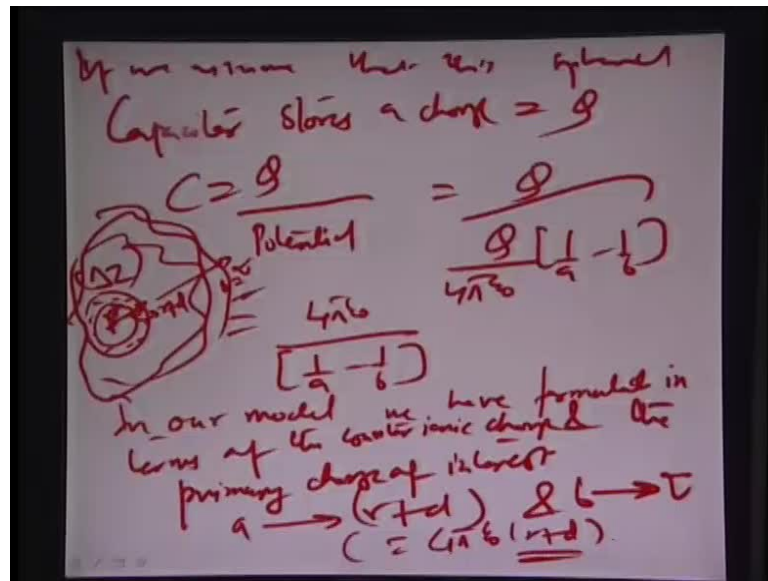 If we assume that this spherical
Capacitor stores a charge = Q
C = Q / Potential = Q / Q/4πε₀ [1/a - 1/b]
= 4πε₀ / [1/a - 1/b]
In our model we have formulated in
terms of the counter ionic charge & the
primary charge of interest
a → (r+d) & b → τ
C = 4πε₀ (r+d).